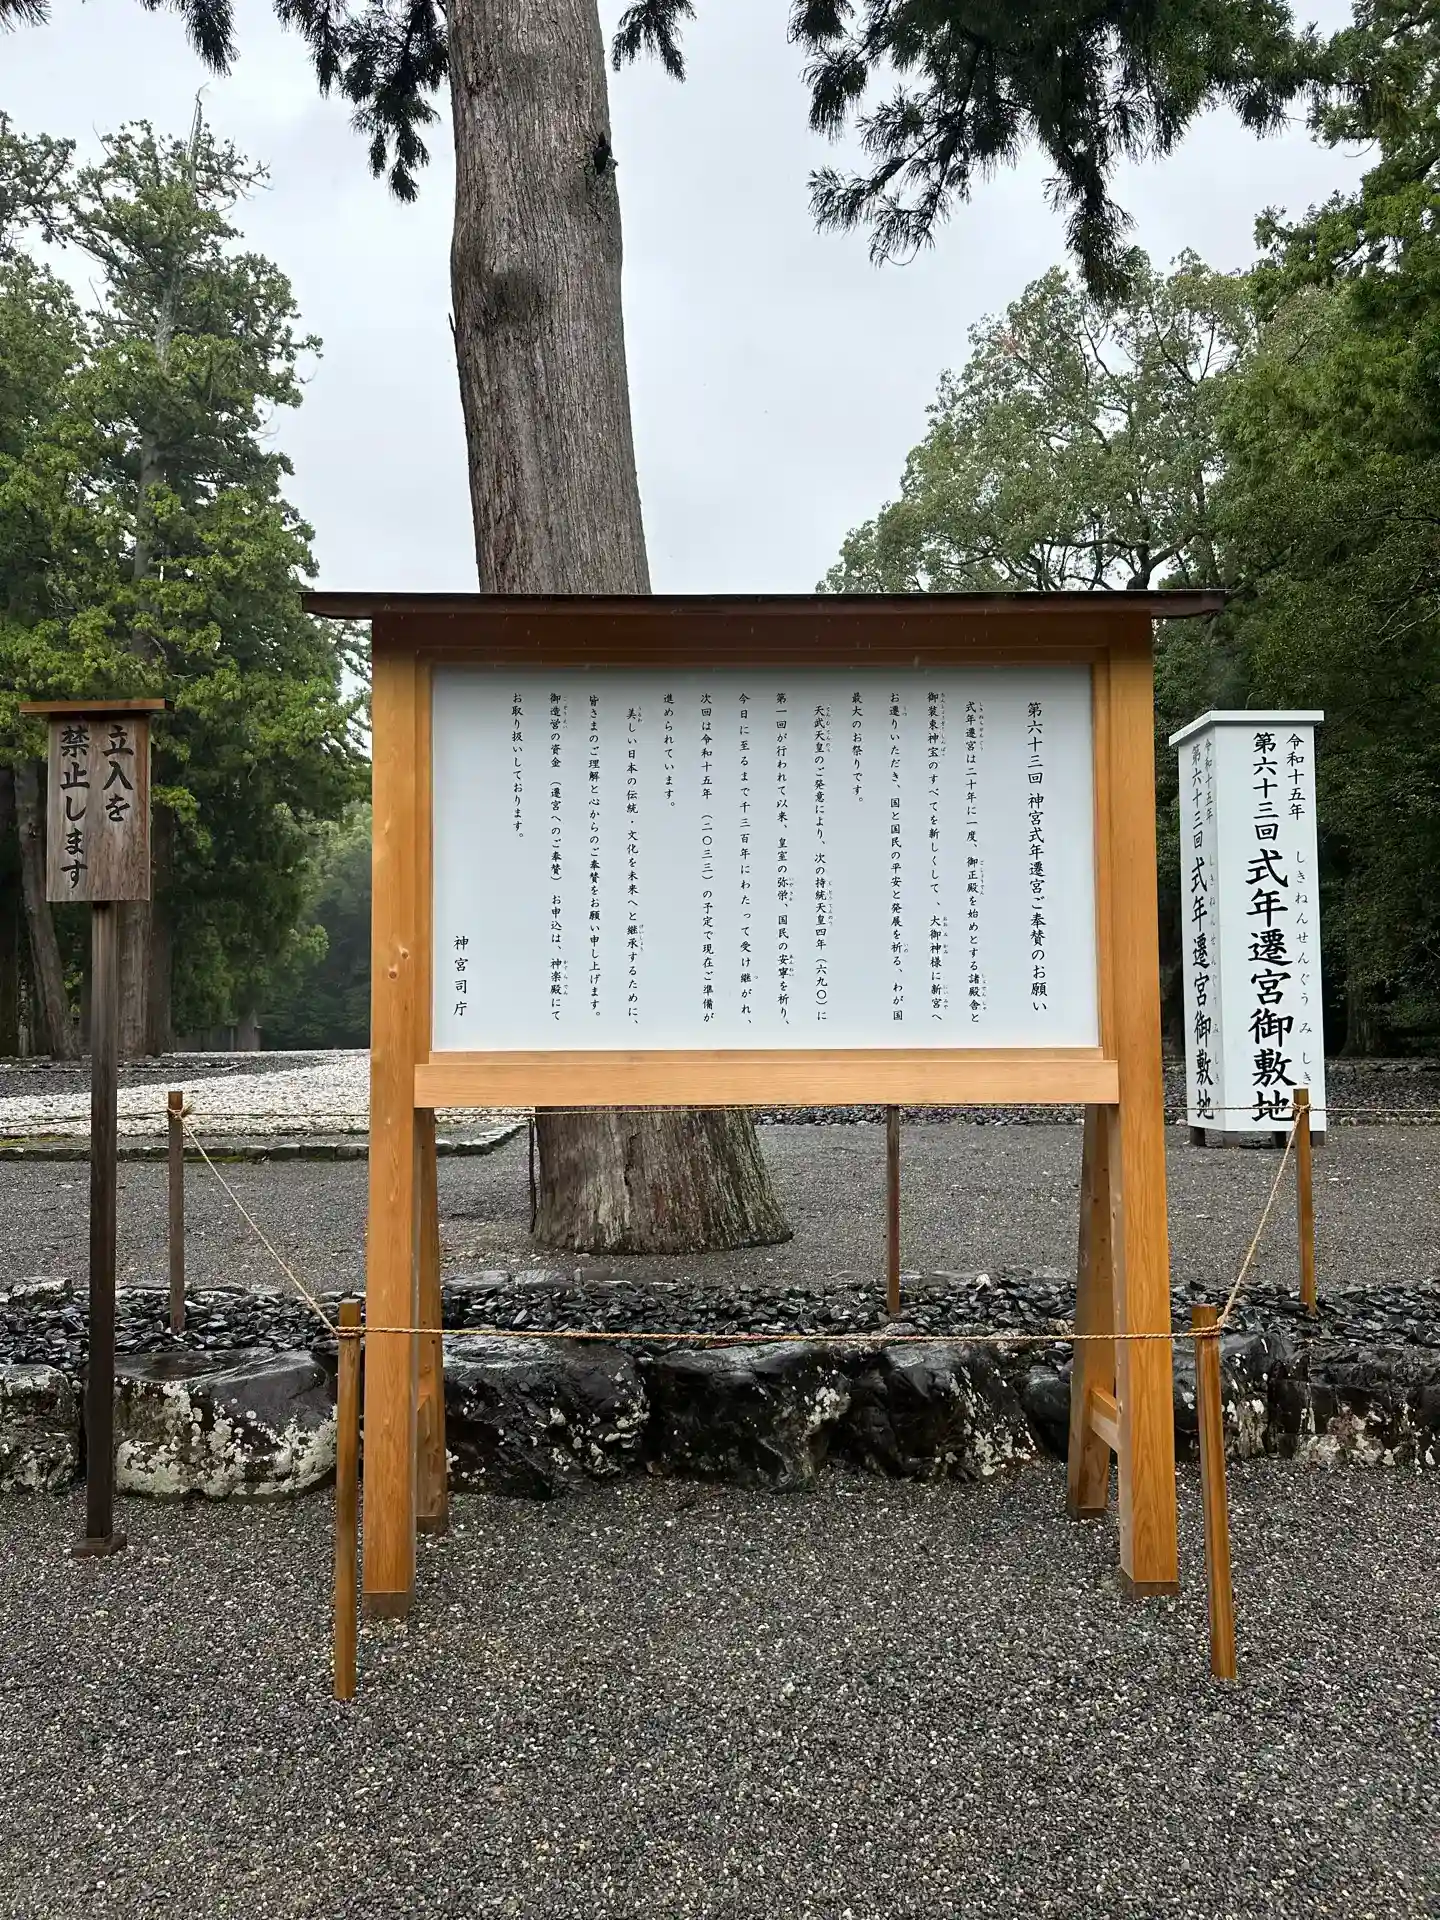 第六十三回 神宮式年遷宮ご奉賛のお願い
式年遷宮は二十年に一度、御正殿を始めとする諸殿舎と
御装束神宝のすべてを新しくして、大御神様に新宮へ
お遷りいただき、国と国民の平安と発展を祈る、わが国
最大のお祭りです。
天武天皇のご発意により、次の持統天皇四年(六九〇)に
第一回が行われて以来、皇室の弥栄、国民の安寧を祈り、
今日に至るまで千三百年にわたって受け継がれ、
次回は令和十五年(二〇三三)の予定で現在ご準備が
進められています。
美しい日本の伝統・文化を未来へと継承するために、
皆さまのご理解と心からのご奉賛をお願い申し上げます。
御造営の資金(遷宮へのご奉賛)お申込は、神楽殿にて
お取り扱いしております。
神宮司庁
立入を
禁止します
令和十五年
第六十三回 式年遷宮御敷地
しきねんせんぐうみしきち
令和十五年
第六十三回 式年遷宮御敷地
しきねんせんぐうみしき